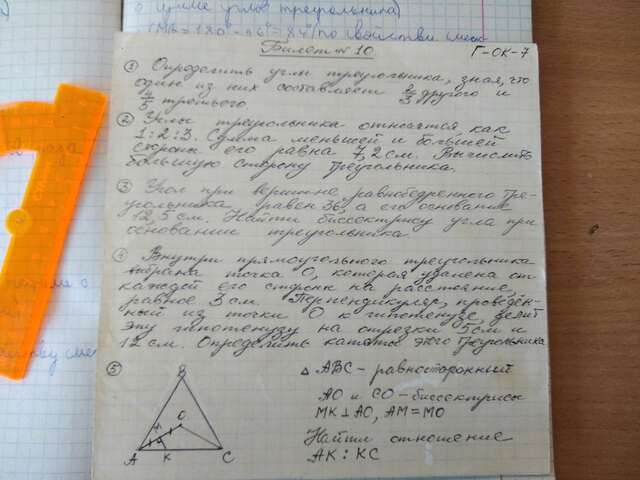 о сумме углов треугольника)
Билет № 10
Г-ОК-7
① Определить углы треугольника, зная, что
один из них составляет 2/3 другого и
4/5 третьего.
② Углы треугольника относятся как
1:2:3. Сумма меньшей и большей
стороны его равна 7,2 см. Вычислить
большую сторону треугольника.
③ Угол при вершине равнобедренного тре-
угольника равен 36°, а его основание
12,5 см. Найти биссектрису угла при
основании треугольника.
④ Внутри прямоугольного треугольника
выбрана точка О, которая удалена от
каждой его сторон на расстояние,
равное 3 см. Перпендикуляр, проведён-
ный из точки О к гипотенузе, делит
эту гипотенузу на отрезки 5 см и
12 см. Определить катеты этого треугольника
⑤
B
O
A
K
C
△ ABC - равносторонний
AO и CO - биссектрисы
MK ⊥ AO, AM = MO
Найти отношение
AK : KC